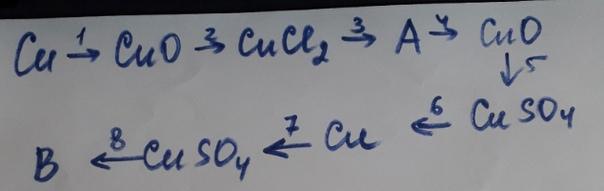 Cu 1→ CuO 2→ CuCl₂ 3→ A 4→ CuO
↓5
B ←8 CuSO₄ ←7 Cu ←6 CuSO₄